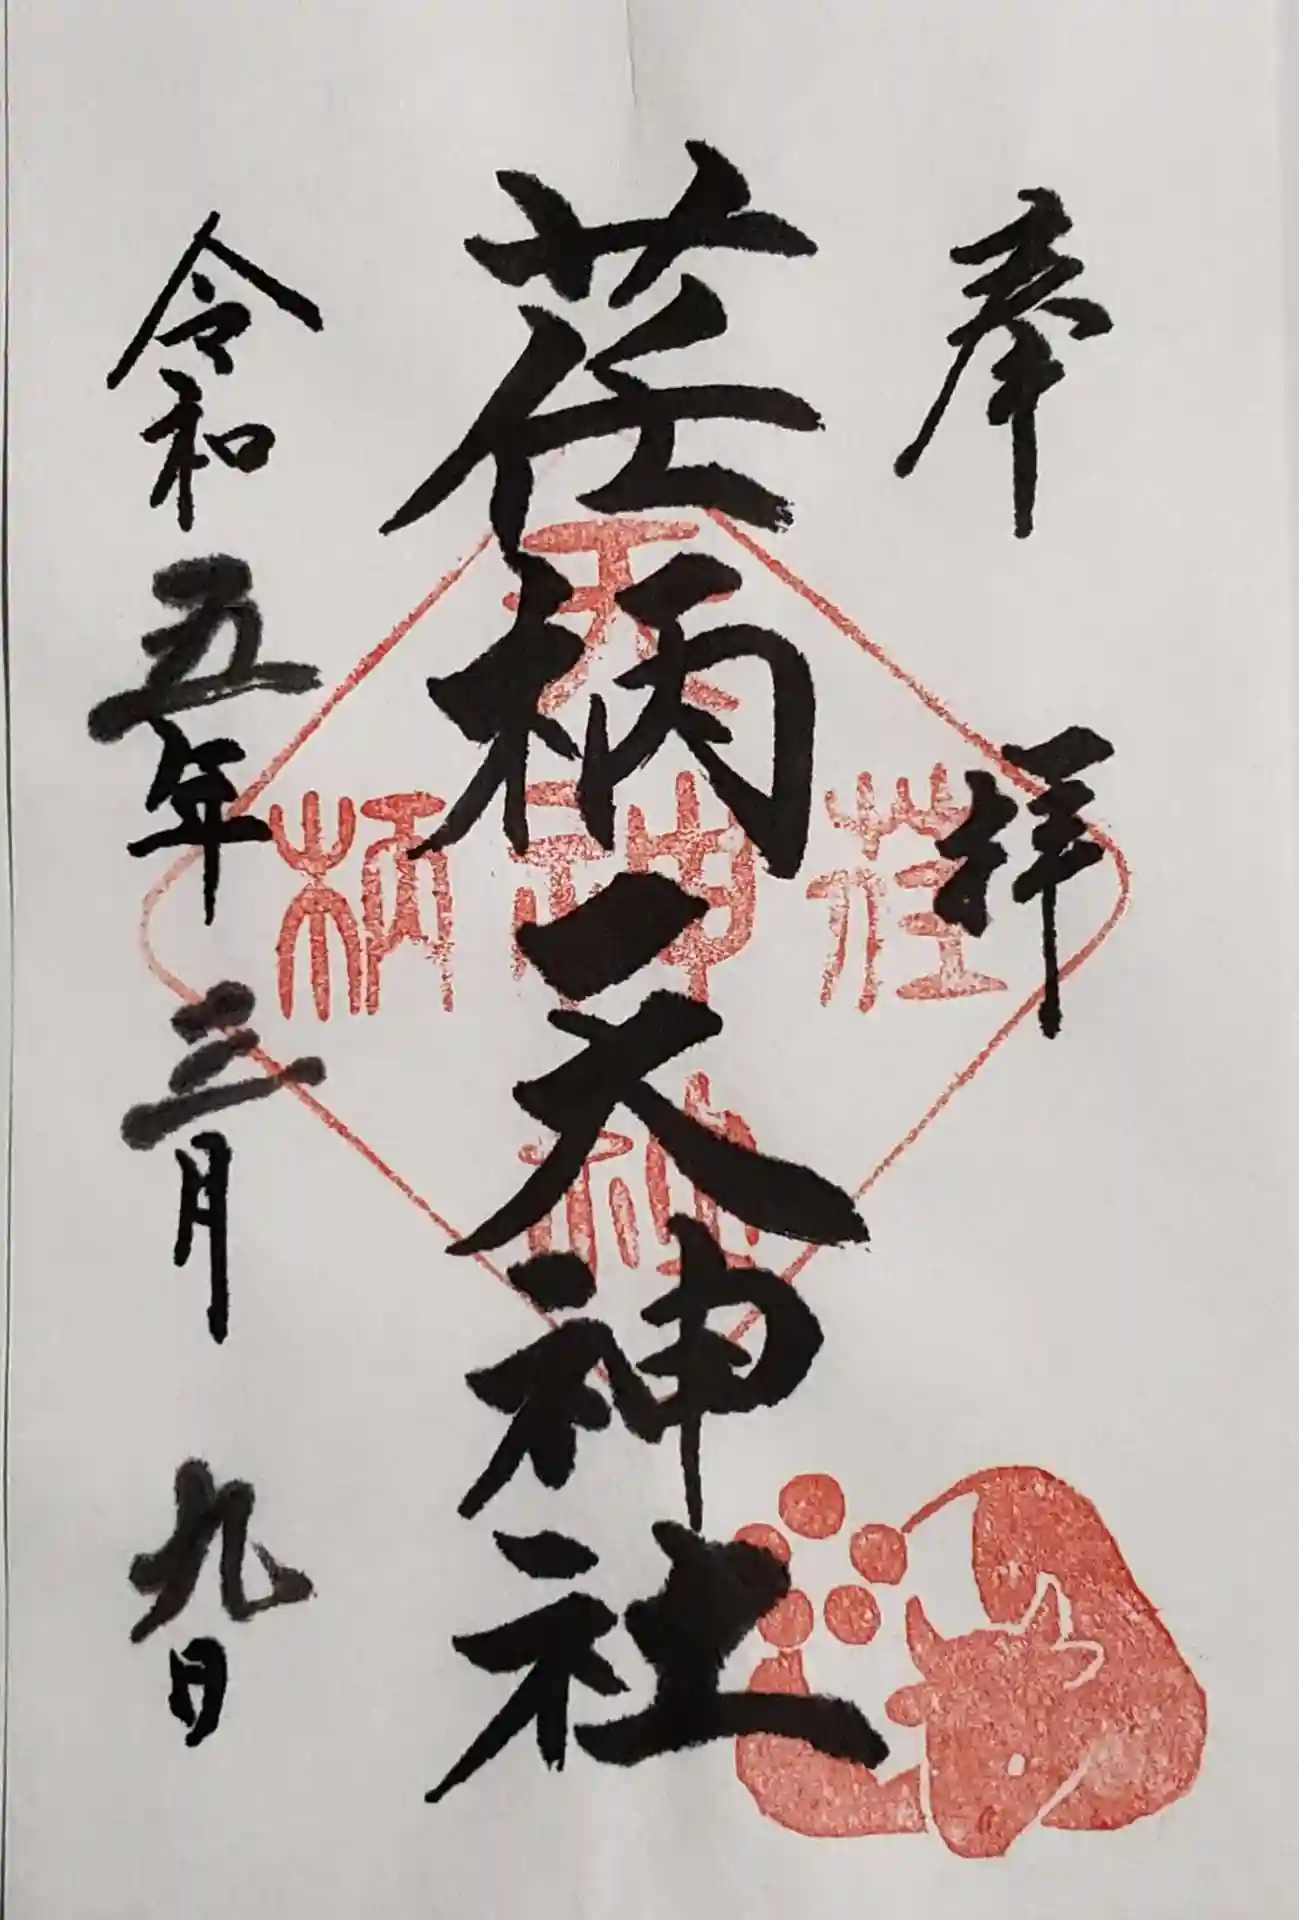 奉拝
荏柄天神社
令和五年三月九日
荏柄天神社